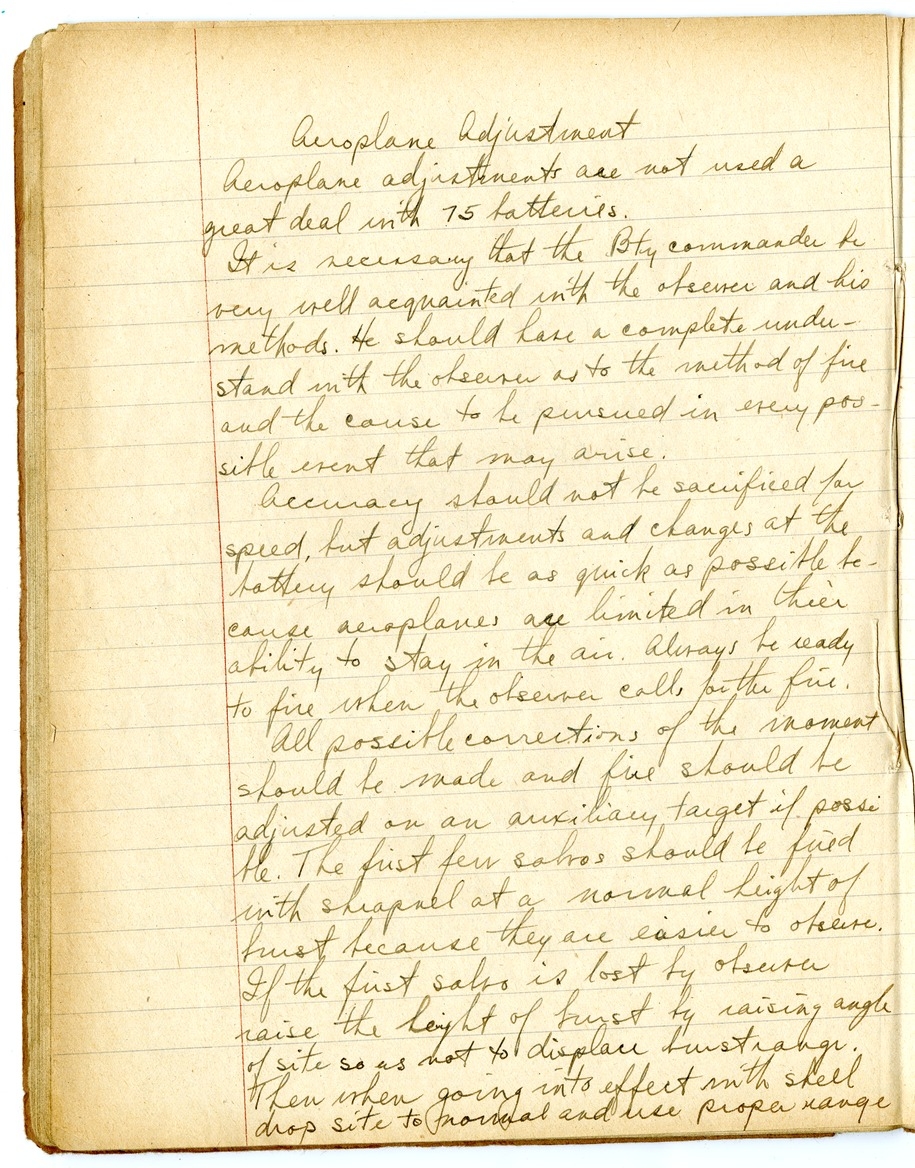 Aeroplane Adjustment
Aeroplane adjustments are not used a
great deal with 75 batteries.
It is necessary that the Bty commander be
very well acquainted with the observer and his
methods. He should have a complete under-
stand with the observer as to the method of fire
and the cause to be pursued in every pos-
sible event that may arise.
Accuracy should not be sacrificed for
speed, but adjustments and changes at the
battery should be as quick as possible be-
cause aeroplanes are limited in thier
ability to stay in the air. Always be ready
to fire when the observer calls for the fire.
All possible corrections of the moment
should be made and fire should be
adjusted on an auxiliary target if possi
ble. The first few salvos should be fired
with shrapnel at a normal height of
burst because they are easier to observe.
If the first salvo is lost by observer
raise the height of burst by raising angle
of site so as not to displace burst range.
Then when going into effect with shell
drop site to normal and use proper range